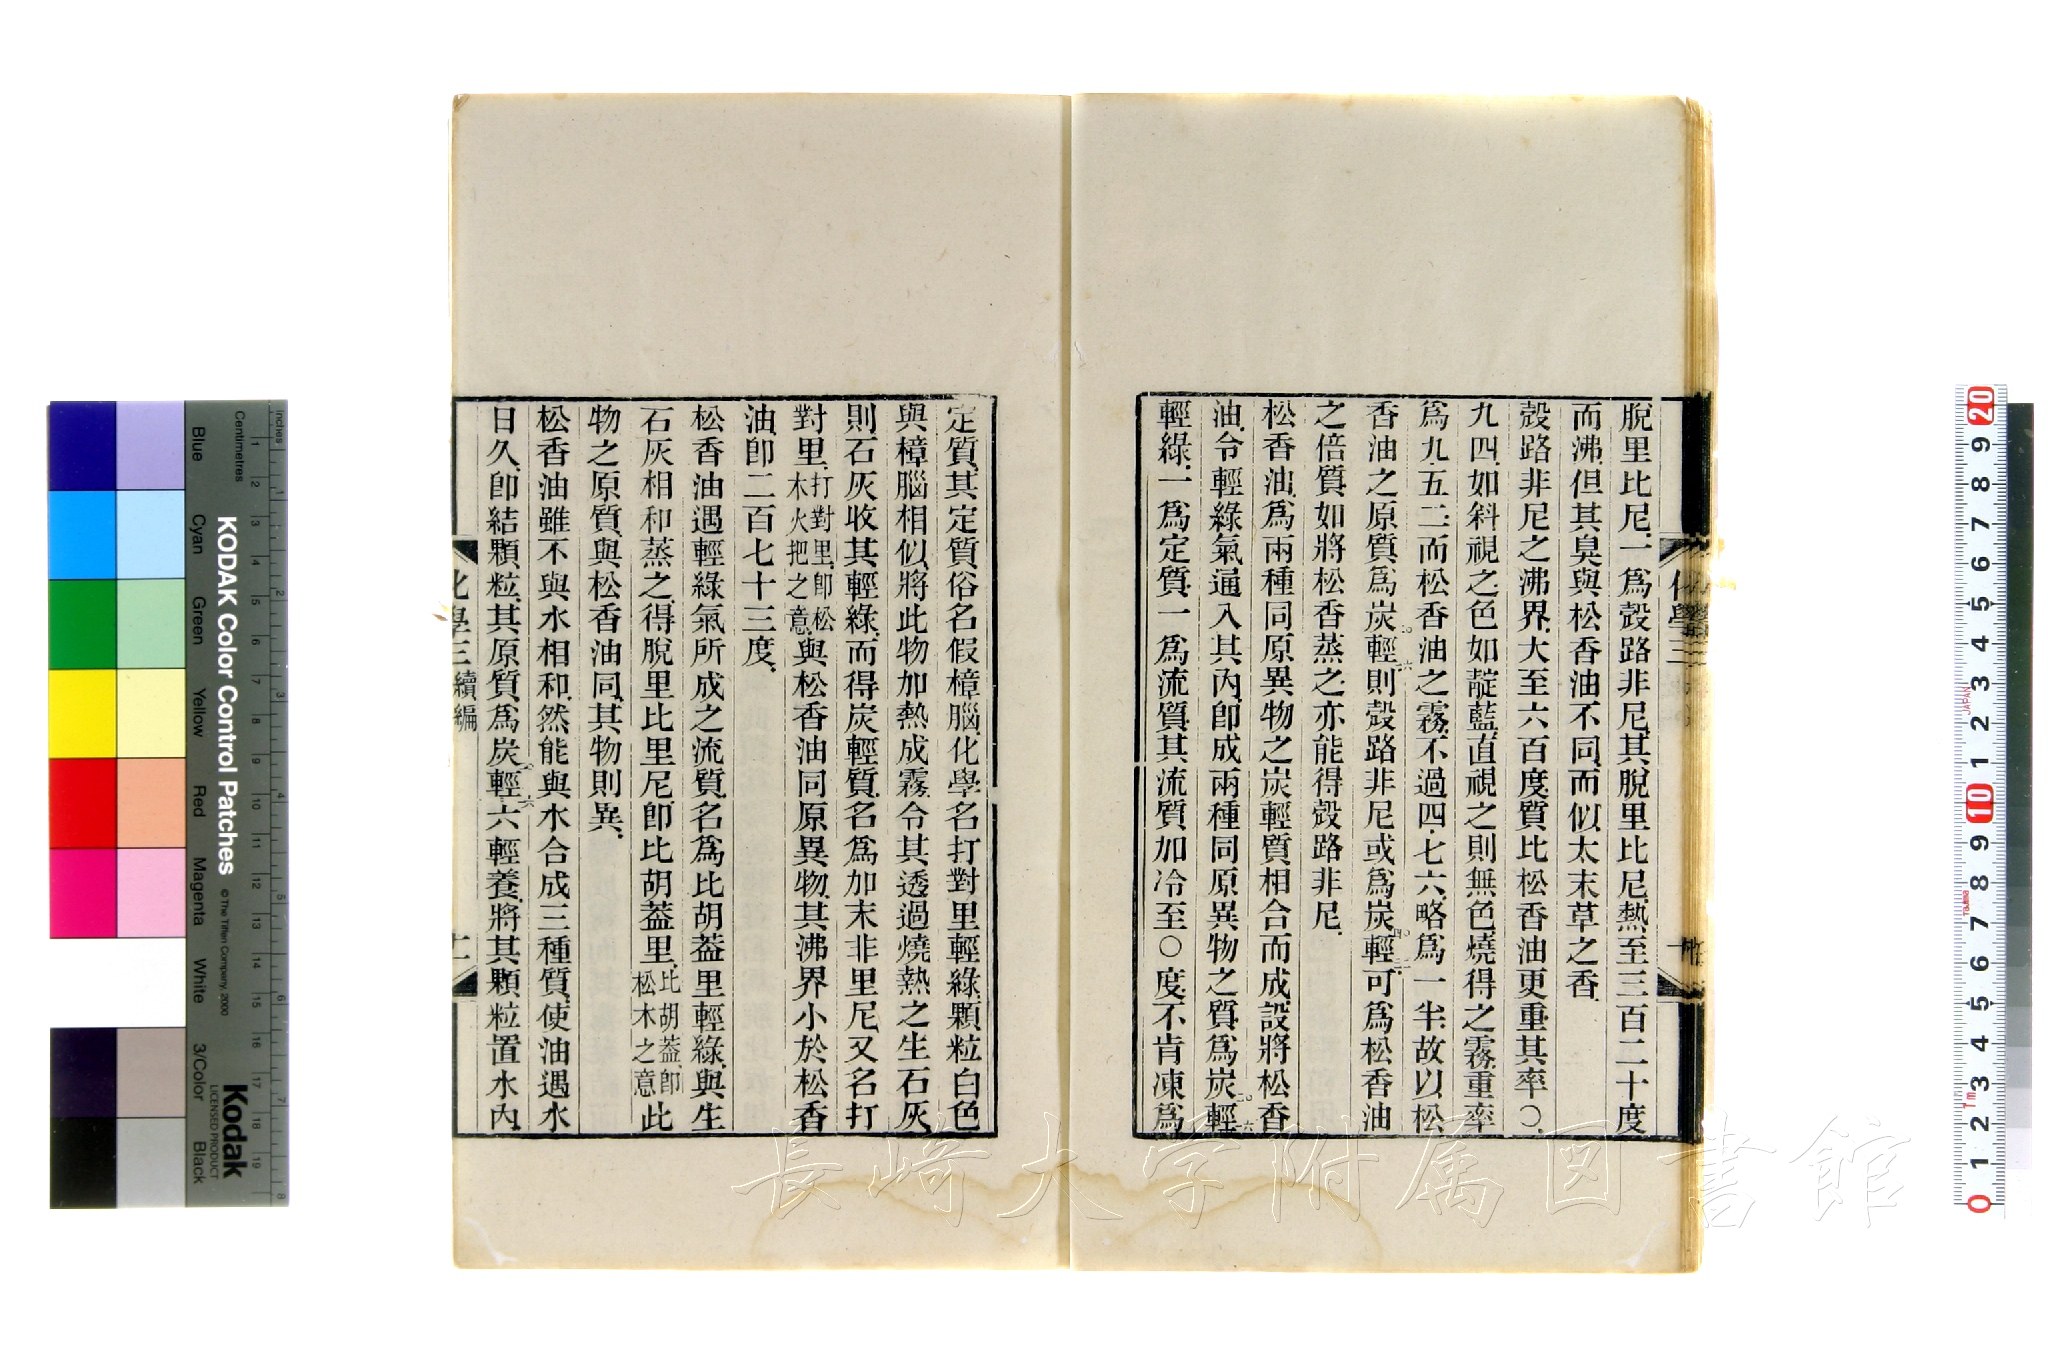 脫里比尼.一爲殼路非尼.其脫里比尼.熱至三百二十度
而沸.但其臭與松香油不同.而似太末草之香.
殼路非尼之沸界.大至六百度.質比松香油更重.其率〇.
九四.如斜視之.色如靛藍.直視之.則無色.燒得之霧.重率
爲九.五二.而松香油之霧.不過四.七六.略爲一半.故以松
香油之原質爲炭二〇輕一六.則殼路非尼或爲炭四〇輕三二.可爲松香油
之倍質.如將松香蒸之.亦能得殼路非尼.
松香油.爲兩種同原異物之炭輕質相合而成.設將松香
油.令輕綠氣通入其內.卽成兩種同原異物之質.爲炭二〇輕一六
輕綠.一爲定質.一爲流質.其流質加冷至〇度.不肯凍爲
定質.其定質俗名假樟腦.化學名打對里輕綠.顆粒白色
與樟腦相似.將此物加熱成霧.令其透過燒熱之生石灰.
則石灰收其輕綠.而得炭輕質.名爲加末非里尼.又名打
對里.打對里.卽松木火把之意.與松香油同原異物.其沸界小於松香
油.卽二百七十三度.
松香油遇輕綠氣所成之流質.名爲比胡葢里輕綠.與生
石灰相和蒸之.得脫里比里尼.卽比胡葢里.比胡葢.卽松木之意此
物之原質.與松香油同.其物則異.
松香油雖不與水相和.然能與水合成三種質.使油遇水
日久.卽結顆粒.其原質.爲炭二〇輕一六六輕養.將其顆粒置水內.
化學三 續編
十二
KODAK Color Control Patches
© The Tiffen Company, 2000
Kodak
LICENSED PRODUCT
Inches
Centimetres
Blue
Cyan
Green
Yellow
Red
Magenta
White
3/Color
Black
長崎大学附属図書館
JAPAN
Tajima